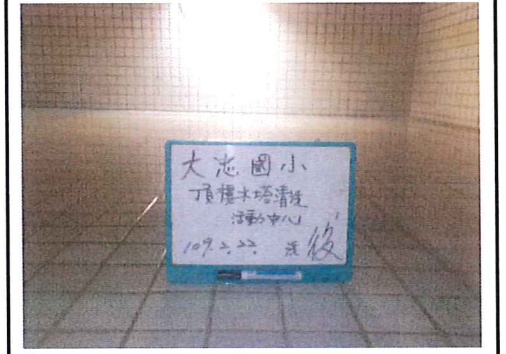 大忠國小
頂樓水塔清洗
活動中心
109.2.22. 洗後